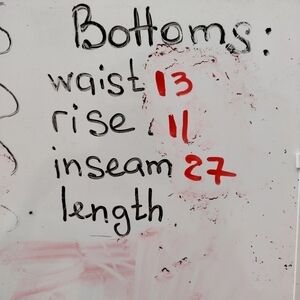 Bottoms:
waist 13
rise 11
inseam 27
length